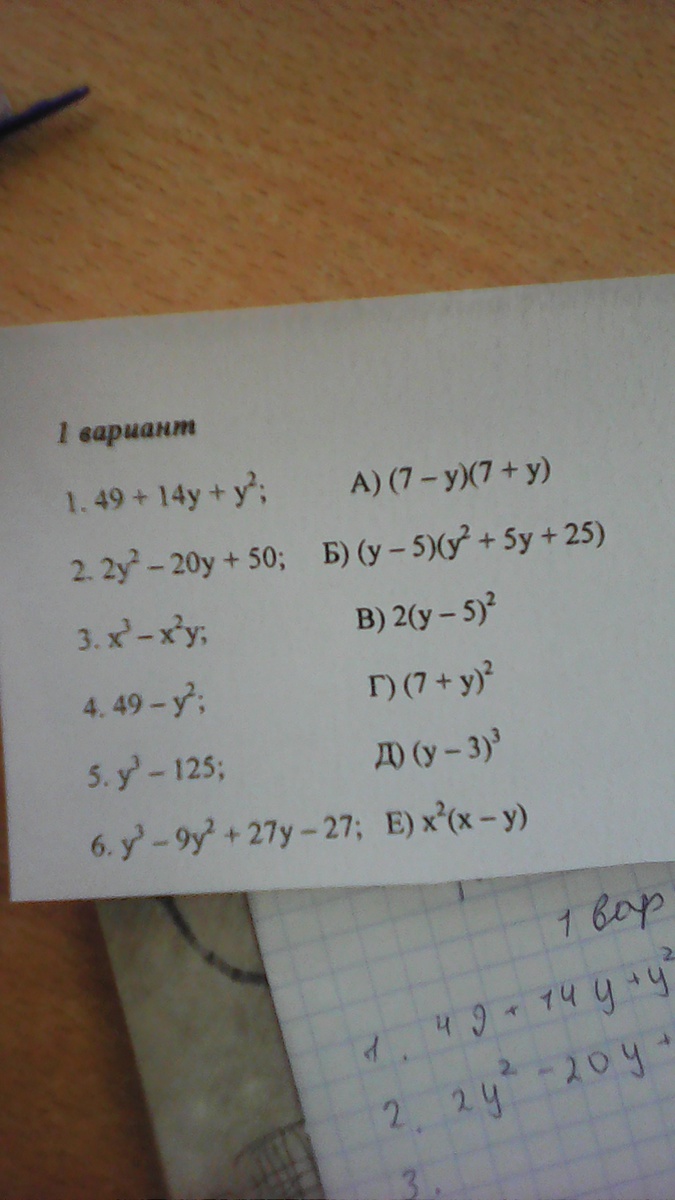 1 вариант
1. 49 + 14y + y²; А) (7 – y)(7 + y)
2. 2y² – 20y + 50; Б) (y – 5)(y² + 5y + 25)
3. x³ – x²y; В) 2(y – 5)²
4. 49 – y²; Г) (7 + y)²
5. y³ – 125; Д) (y – 3)³
6. y³ – 9y² + 27y – 27; Е) x²(x – y)
1 вар
1. 49 + 14y + y²
2. 2y² – 20y +
3.